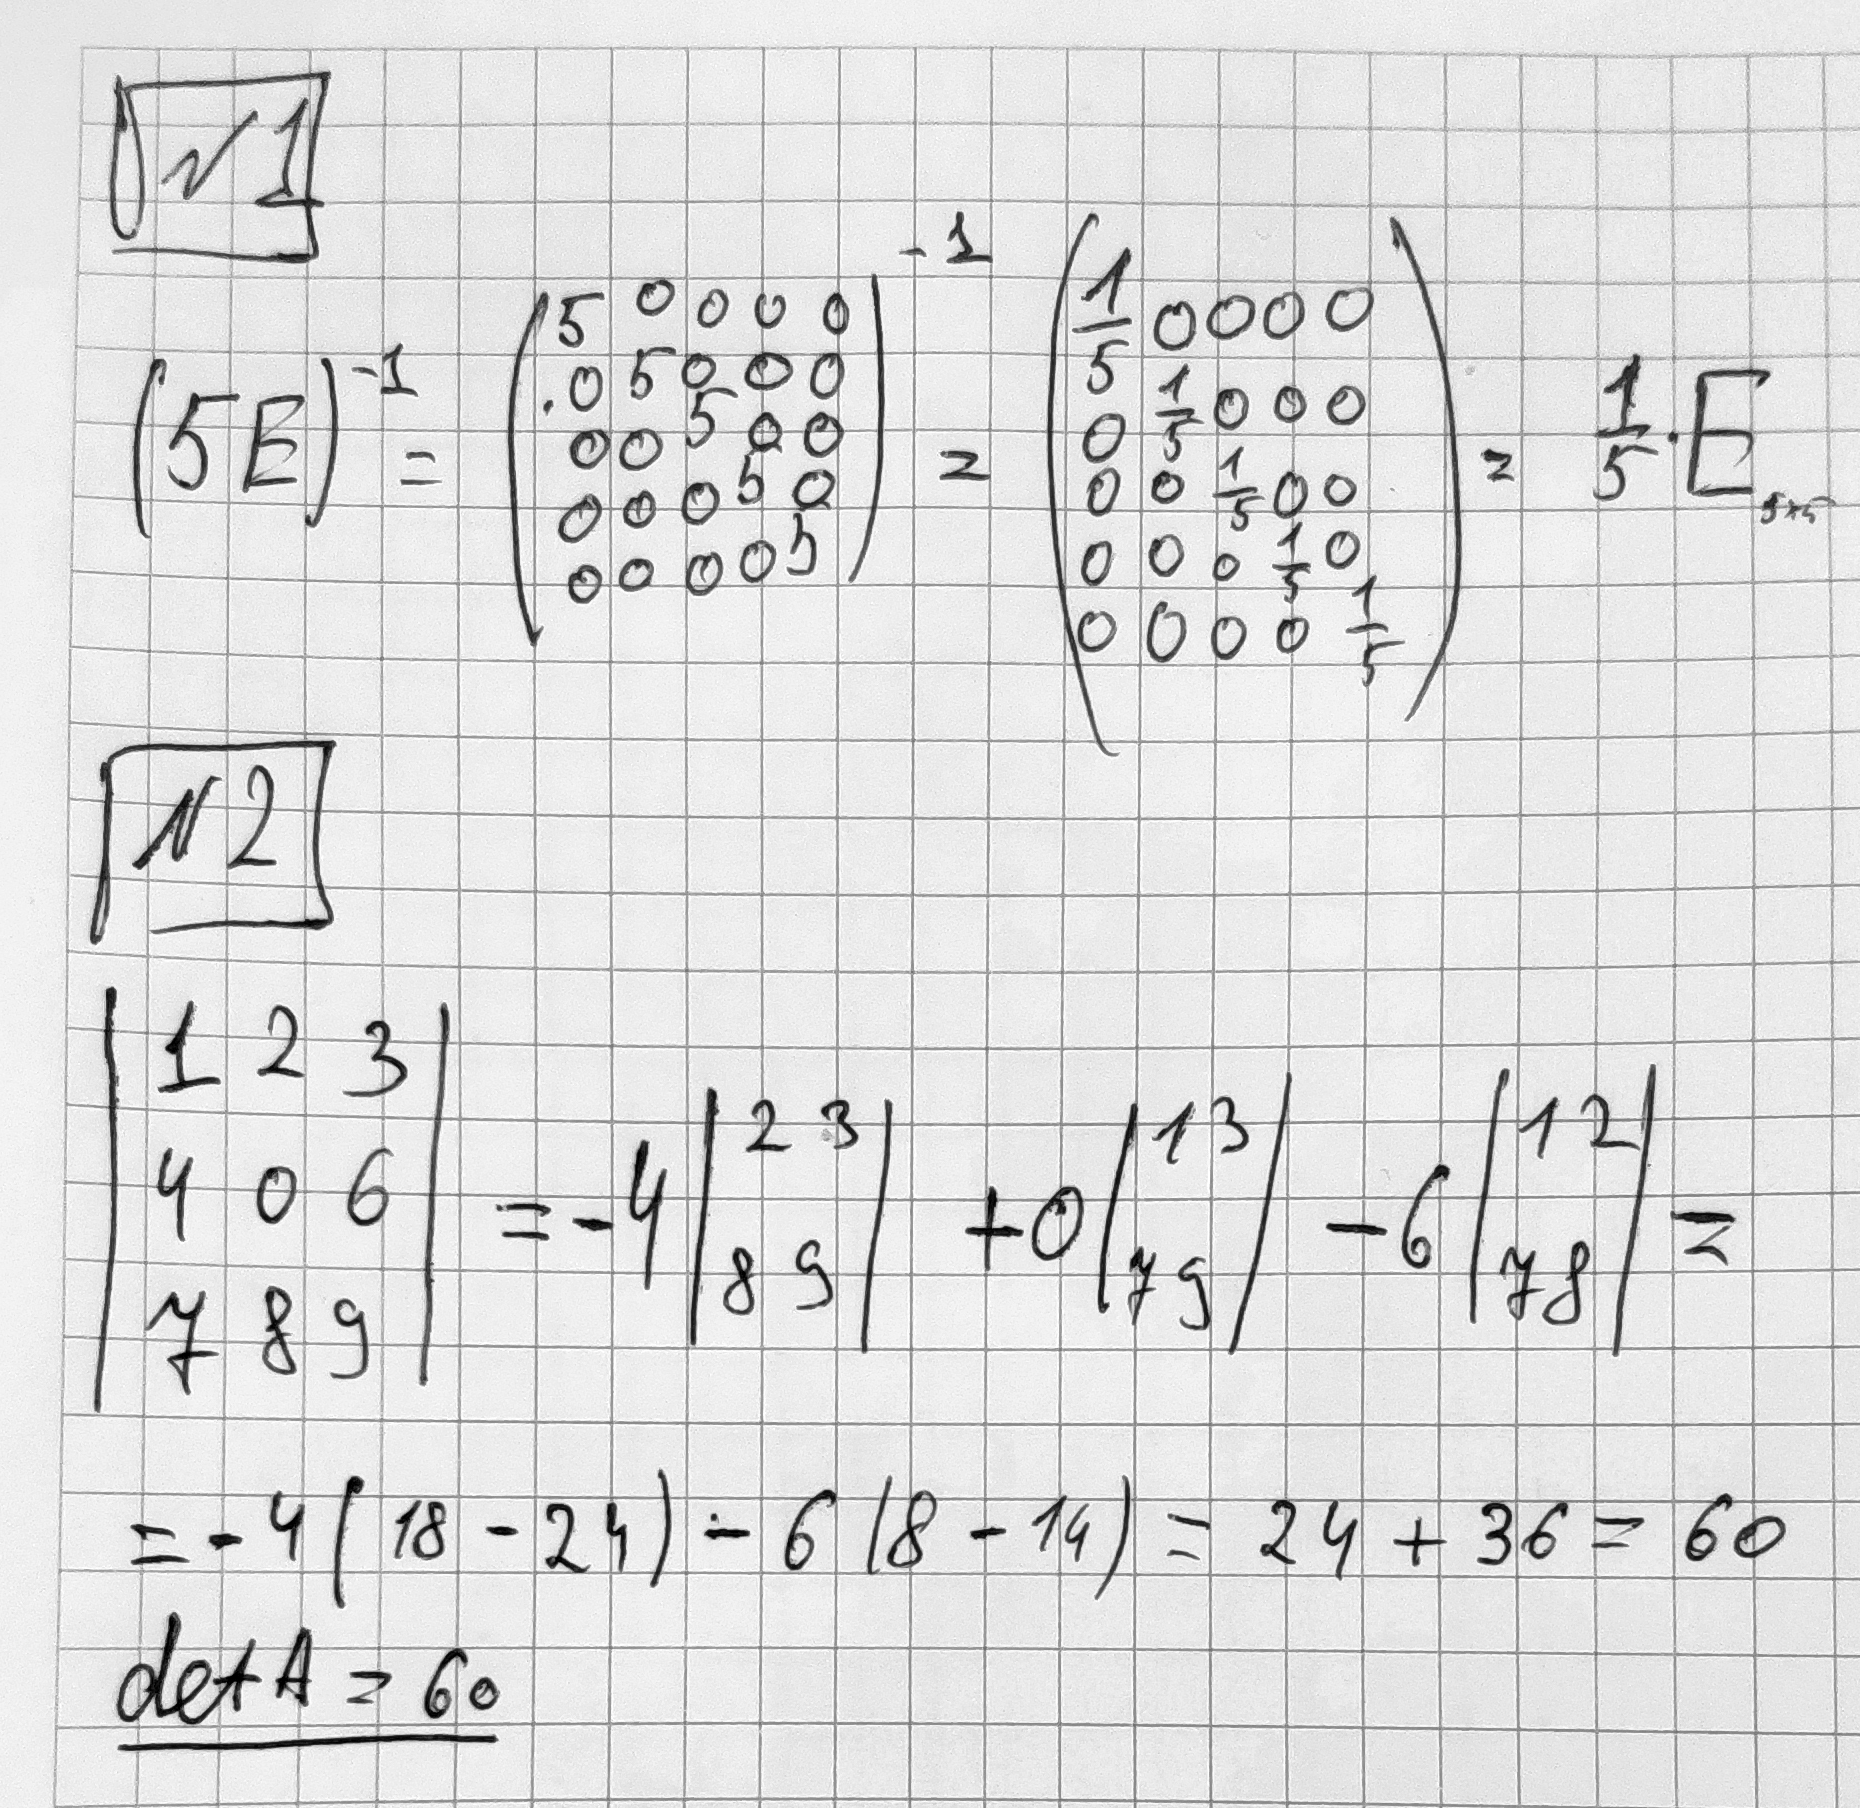 №1
(5E)⁻¹ = (5 0 0 0 0; 0 5 0 0 0; 0 0 5 0 0; 0 0 0 5 0; 0 0 0 0 5)⁻¹ = (1/5 0 0 0 0; 0 1/5 0 0 0; 0 0 1/5 0 0; 0 0 0 1/5 0; 0 0 0 0 1/5) = 1/5 · E₅ₓ₅
№2
|1 2 3; 4 0 6; 7 8 9| = -4 |2 3; 8 9| + 0 |1 3; 7 9| - 6 |1 2; 7 8| =
= -4 (18 - 24) - 6 (8 - 14) = 24 + 36 = 60
det A = 60